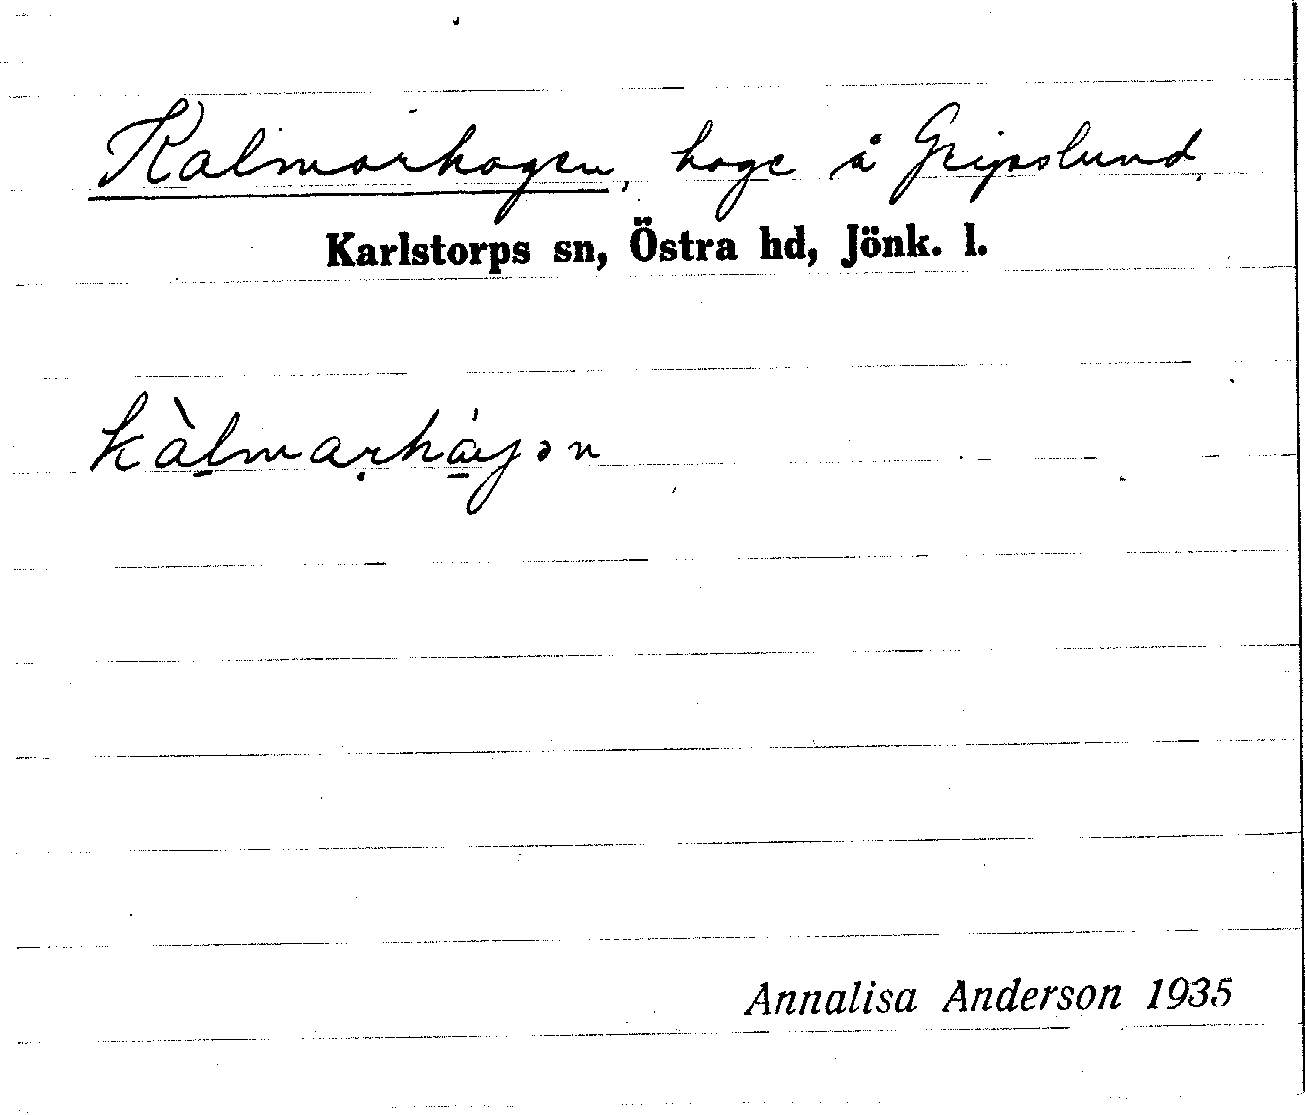 Kalmarhagen, hage å Gripslund,
Karlstorps sn, Östra hd, Jönk. l.
kàlmarhág̣ən
Annalisa Anderson 1935